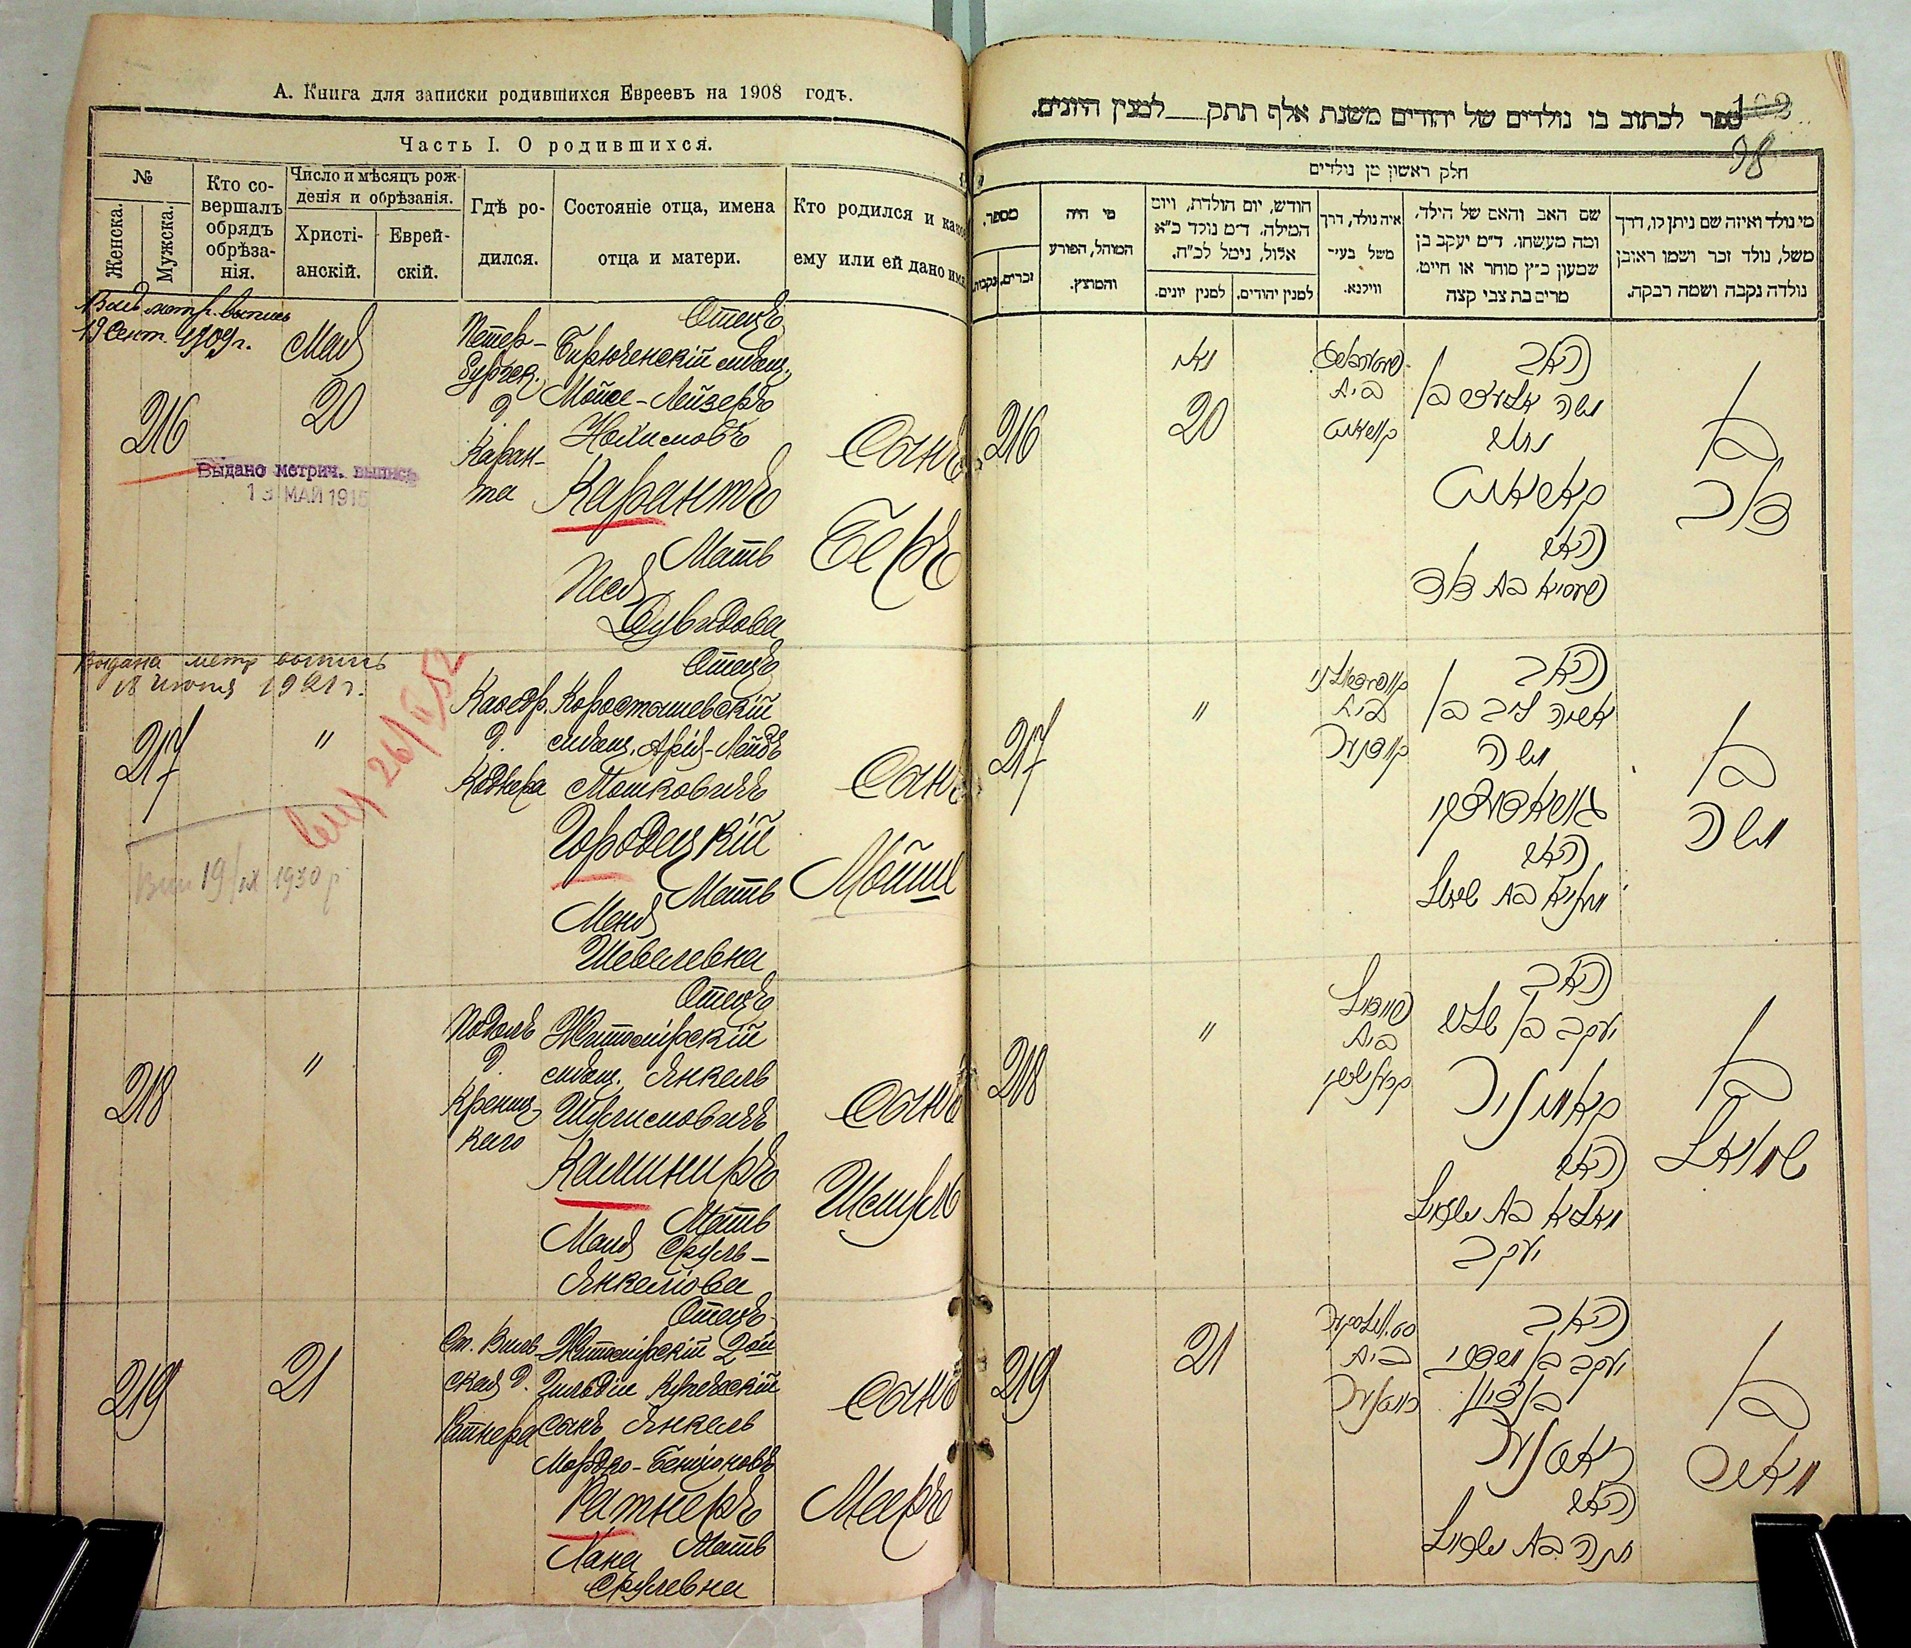 А. Книга для записки родившихся Евреевъ на 1908 годъ.
Часть I. О родившихся.
№
Женска.
Мужска.
Кто со-
вершалъ
обрядъ
обрѣза-
нія.
Число и мѣсяцъ рож-
денія и обрѣзанія.
Христі-
анскій.
Еврей-
скій.
Гдѣ ро-
дился.
Состояніе отца, имена
отца и матери.
Кто родился и како
ему или ей дано имя
метр. выпись
19 Сент. 1909 г.
216
Май
20
Выдано метрич. выпись
13 МАЙ 1915
Петер-
бургск.
д.
Каран-
та
Отецъ
Бирюченскій мѣщ.
Мойсе-Лейзеръ
Нахимовъ
Карантъ
Мать
Песя
Дувидова
Сынъ
Беръ
Выдана метр выпись
18 июня 1921 г.
217
"
26/
19/IX 1930 р
Каѳедр.
д.
Коднера
Отецъ
Коростышевскій
мѣщ. Арій-Лейбъ
Мошковичъ
Городецкій
Мать
Меня
Шевелевна
Сынъ
Мойше
218
"
Подолъ
д.
Крениц-
каго
Отецъ
Житомірскій
мѣщ. Янкель
Шулимовичъ
Каминиръ
Мать
Маля Сруль-
Янкелюва
Сынъ
Шмуль
219
21
Ст. Вильв-
ская д.
Ратнера
Отецъ
Житомірскій 2ой
Гильдіи Купеческій
сынъ Янкель
Мордко-Бенціоновъ
Ратнеръ
Мать
Хана
Срулевна
Сынъ
Маръ
ספר לכתוב בו נולדים של יהודים משנת אלף תתק למנין היונים.
102
98
חלק ראשון מן נולדים
מספר.
זכרים.
נקבות.
מי היה
המוהל, הפורע
והמוצץ.
חודש, יום הולדת, ויום
המילה. ד״מ נולד כ״א
אלול, נימל לכ״ח.
למנין יונים.
למנין יהודים.
איה נולד, דרך
משל בעיר
ווילנא.
שם האב והאם של הילד,
ומה מעשהו. ד״מ יעקב בן
שמעון כ״ץ סוחר או חייט.
מרים בת צבי קצה
מי נולד ואיזה שם ניתן לו, דרך
משל, נולד זכר ושמו ראובן
נולדה נקבה ושמה רבקה.
216
מאי
20
בית
קאראנט
האב
משה אלעזר בן
נחום
קאראנט
האם
בת דוד
בן
דוב
217
"
בית
קודנער
האב
אריה ליב בן
משה
גוראדעצקי
האם
בת שאול
בן
משה
218
"
פודול
בית
האב
יעקב בן שלום
קאמיניר
האם
מאליא בת ישראל
יעקב
בן
שמואל
219
21
בית
ראטנער
האב
יעקב בן מרדכי
בן ציון
ראטנער
האם
חנה בת ישראל
בן
מארק